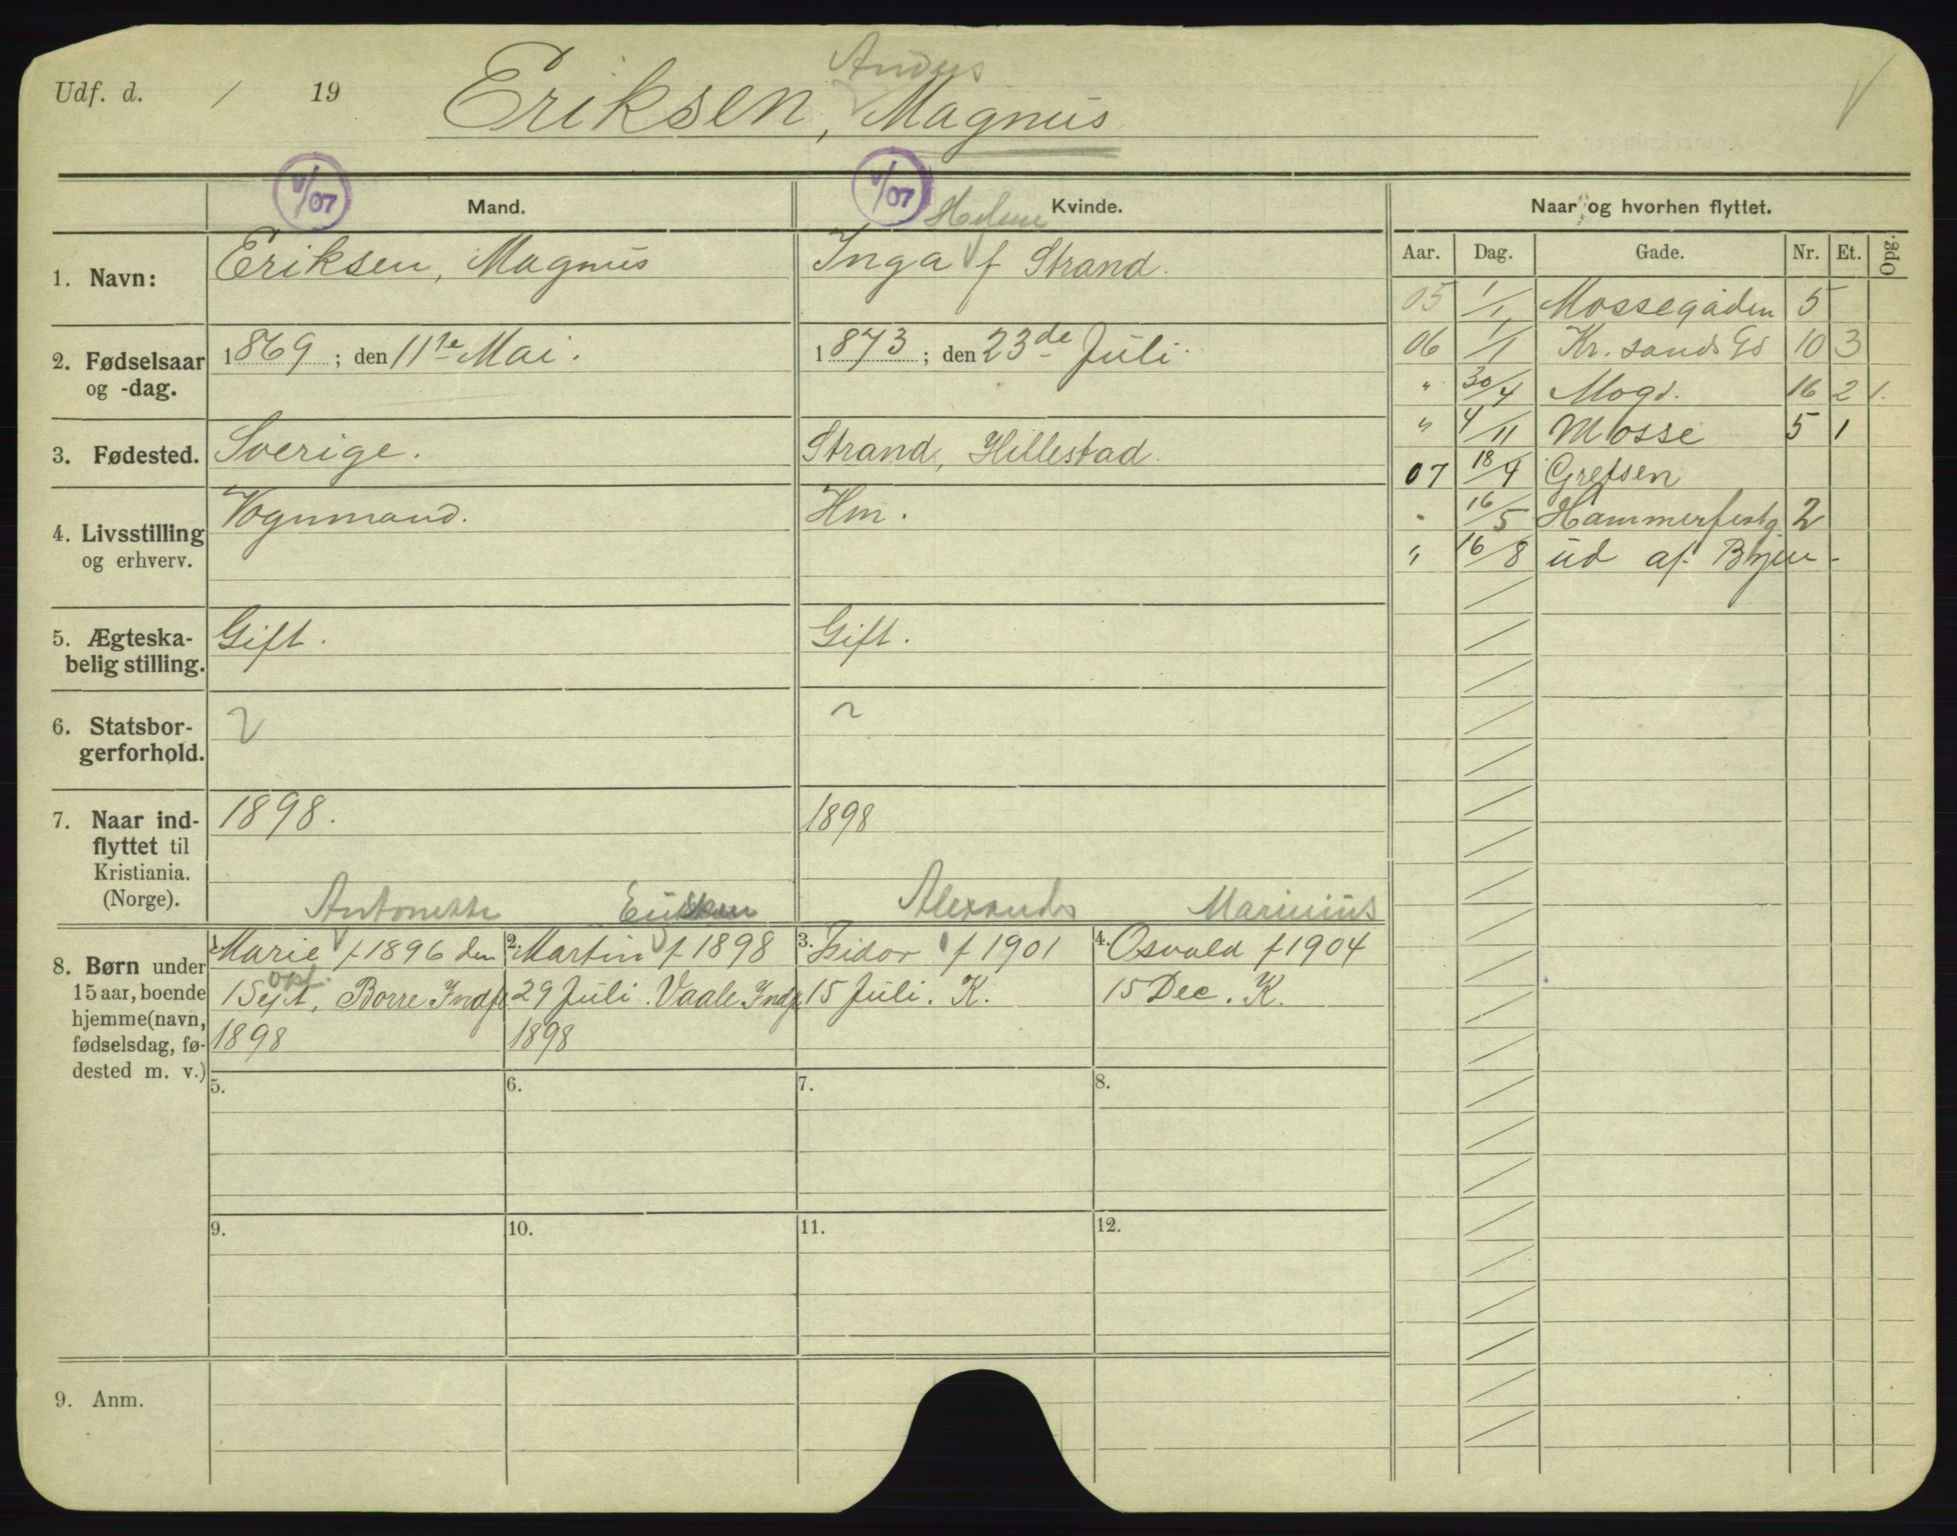 Udf. d. / 19
Anders
Eriksen, Magnus
V/07 V/07
Mand. Kvinde. Naar og hvorhen flyttet.
Helene
Aar. Dag. Gade. Nr. Et. Opg.
1. Navn: Eriksen, Magnus
Inga f Strand.
2. Fødselsaar og -dag. 1869; den 11te Mai.
1873; den 23de Juli.
3. Fødested. Sverige.
Strand, Hillestad.
4. Livsstilling og erhverv. Vognmand.
Hm.
5. Ægteskabelig stilling. Gift.
Gift.
6. Statsborgerforhold.
7. Naar indflyttet til Kristiania. (Norge). 1898.
1898
05 1/1 Mossegaden 5
06 1/1 Kr.sands Gd 10 3
" 30/4 Mogt. 16 2 1.
" 4/11 Mosse 5 1
07 18/4 Grefsen
" 16/5 Hammerfestg 2
" 16/8 ud af Byen -
8. Børn under 15 aar, boende hjemme (navn, fødselsdag, fødested m. v.)
Antonette
1. Marie f 1896 den
1 Sept, Borre Indfl
1898
Eriksen
2. Martin f 1898
29 Juli. Vaale Indfl
1898
Alexander
3. Isidor f 1901
15 Juli. K.
Marinius
4. Osvald f 1904
15 Dec. K.
5. 6. 7. 8.
9. 10. 11. 12.
9. Anm.